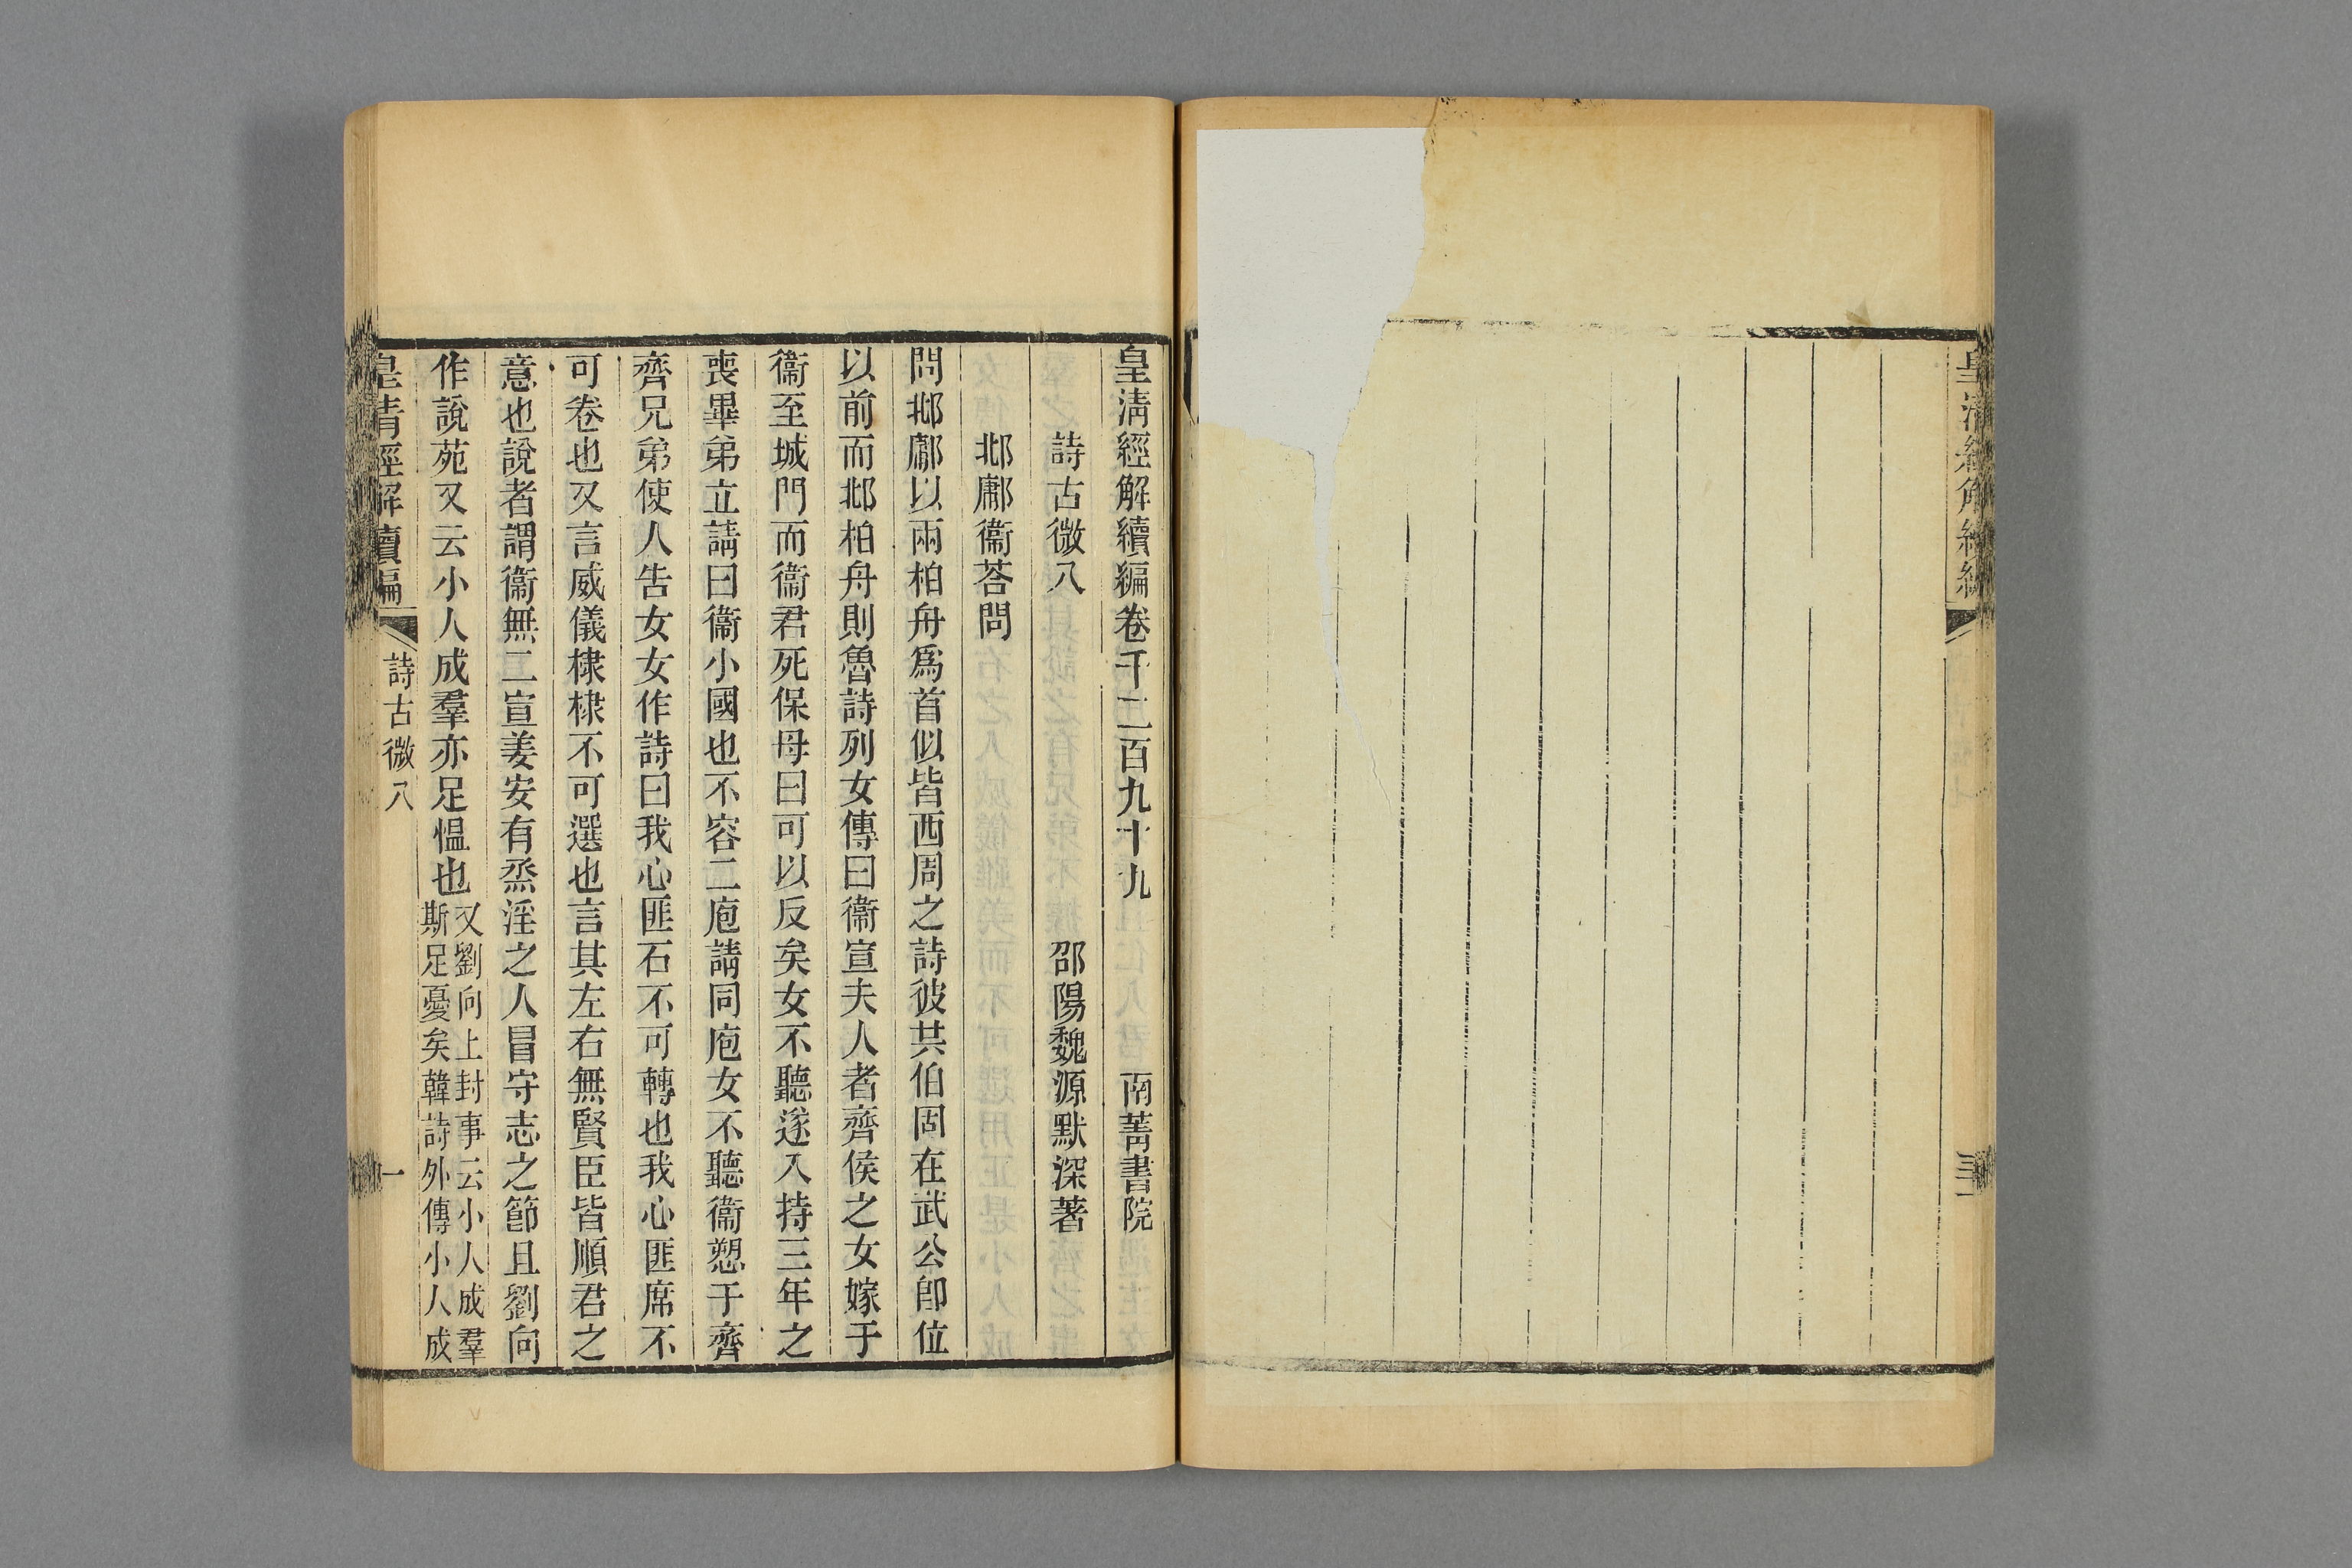 皇清經解續編
三十一
皇清經解續編卷千二百九十九 南菁書院
詩古微八 邵陽魏源默深著
邶鄘衞荅問
問邶鄘以兩柏舟爲首似皆西周之詩彼共伯固在武公卽位
以前而邶柏舟則魯詩列女傳曰衞宣夫人者齊侯之女嫁于
衞至城門而衞君死保母曰可以反矣女不聽遂入持三年之
喪畢弟立請曰衞小國也不容二庖請同庖女不聽衞愬于齊
齊兄弟使人告女女作詩曰我心匪石不可轉也我心匪席不
可卷也又言威儀棣棣不可選也言其左右無賢臣皆順君之
意也說者謂衞無二宣姜安有烝淫之人冒守志之節且劉向
作說苑又云小人成羣亦足愠也又劉向上封事云小人成羣
斯足憂矣韓詩外傳小人成
皇清經解續編 詩古微八 一